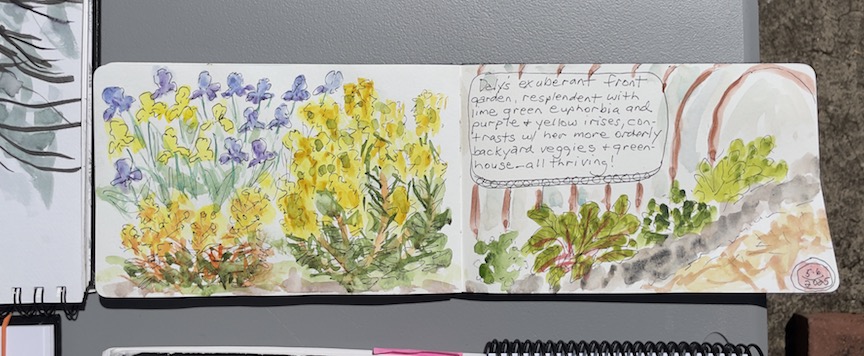 Dely's exuberant front
garden, resplendent with
lime green euphorbia and
purple + yellow irises, con-
trasts w/ her more orderly
backyard veggies + green-
house—all thriving!
5.6.
2025